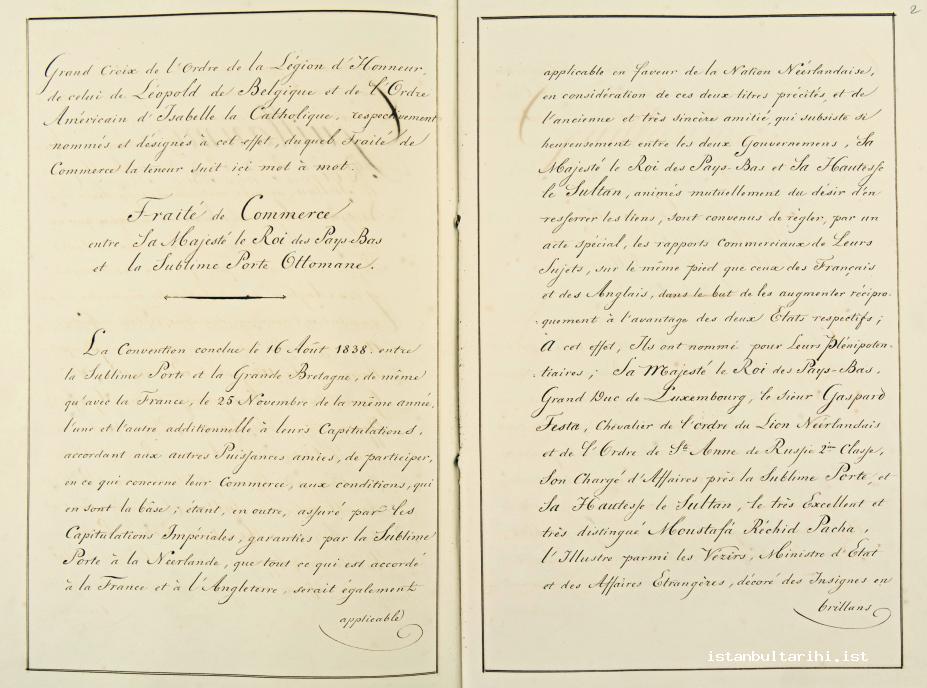 Grand Croix de l'Ordre de la Légion d'Honneur,
de celui de Léopold de Belgique et de l'Ordre
Américain d'Isabelle la Catholique, respectivement
nommés et désignés à cet effet, duquel Traité de
Commerce la teneur suit ici mot à mot.
Traité de Commerce
entre Sa Majesté le Roi des Pays-Bas
et la Sublime Porte Ottomane.
La Convention conclue le 16 Août 1838. entre
la Sublime Porte et la Grande Bretagne, de même
qu'avec la France, le 25 Novembre de la même année,
l'une et l'autre additionnelle à leurs Capitulations,
accordant aux autres Puissances amies, de participer,
en ce qui concerne leur Commerce, aux conditions, qui
en sont la bâse; étant, en outre, assuré par les
Capitulations Impériales, garanties par la Sublime
Porte à la Néerlande, que tout ce qui est accordé
à la France et à l'Angleterre, serait également
applicable
2
applicable en faveur de la Nation Néerlandaise,
en considération de ces deux titres précités, et de
l'ancienne et très sincère amitié, qui subsiste si
heureusement entre les deux Gouvernemens, Sa
Majesté le Roi des Pays-Bas et Sa Hautesse
le Sultan, animés mutuellement du désir d'en
resserrer les liens, sont convenus de règler, par un
acte spécial, les rapports commerciaux de Leurs
Sujets, sur le même pied que ceux des Français
et des Anglais, dans le but de les augmenter récipro-
-quement à l'avantage des deux Etats respectifs;
A cet effet, Ils ont nommé pour Leurs Plénipoten-
-tiaires; Sa Majesté le Roi des Pays-Bas,
Grand Duc de Luxembourg, le Sieur Gaspard
Testa, Chevalier de l'ordre du Lion Néerlandais
et de l'Ordre de Ste Anne de Russie 2me Classe,
Son Chargé d'Affaires près la Sublime Porte, et
Sa Hautesse le Sultan, le très Excellent et
très distingué Moustafá Réchid Pacha,
l'Illustre parmi les Vézirs, Ministre d'Etat
et des Affaires Etrangères, décoré des Insignes en
brillans
istanbultarihi.ist